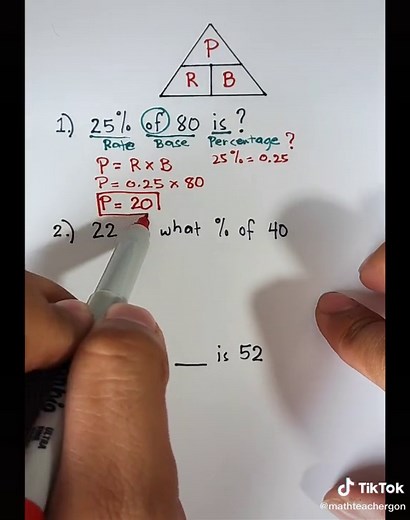 P
R B
1.) 25% of 80 is ?
Rate Base Percentage ?
P = R x B 25% = 0.25
P = 0.25 x 80
P = 20
2.) 22 what % of 40
__ is 52
ULTRA
FINE
TikTok
@mathteachergon